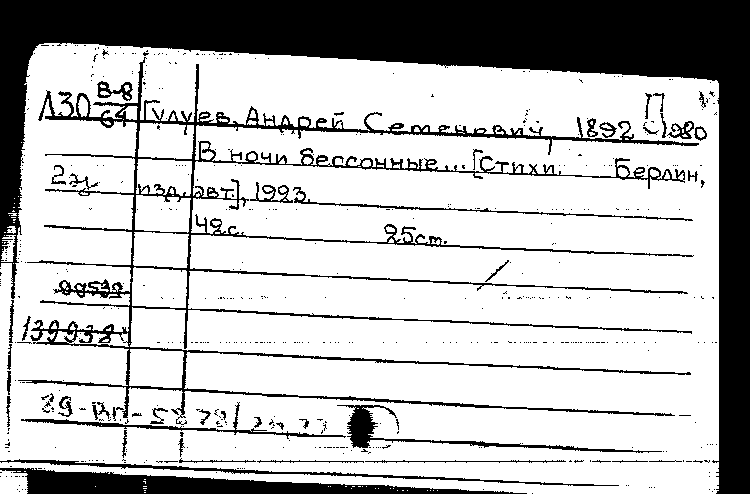 Л30 В-8/64 Гулуев, Андрей Семенович, 1892-1980 П
В ночи бессонные... [Стихи. Берлин,
2э изд. авт.], 1923.
42с. 25см.
99539
139938
89-Вп-5878/